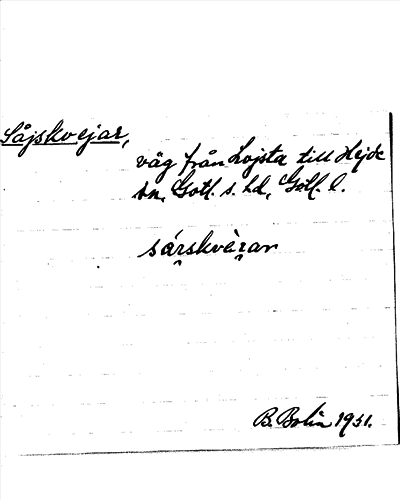 Såjskvejar,
väg från Lojsta till Hejde
sn, Gotl. s. hd, Gotl. l.
sárskvèrar
B. Bolin 1931.